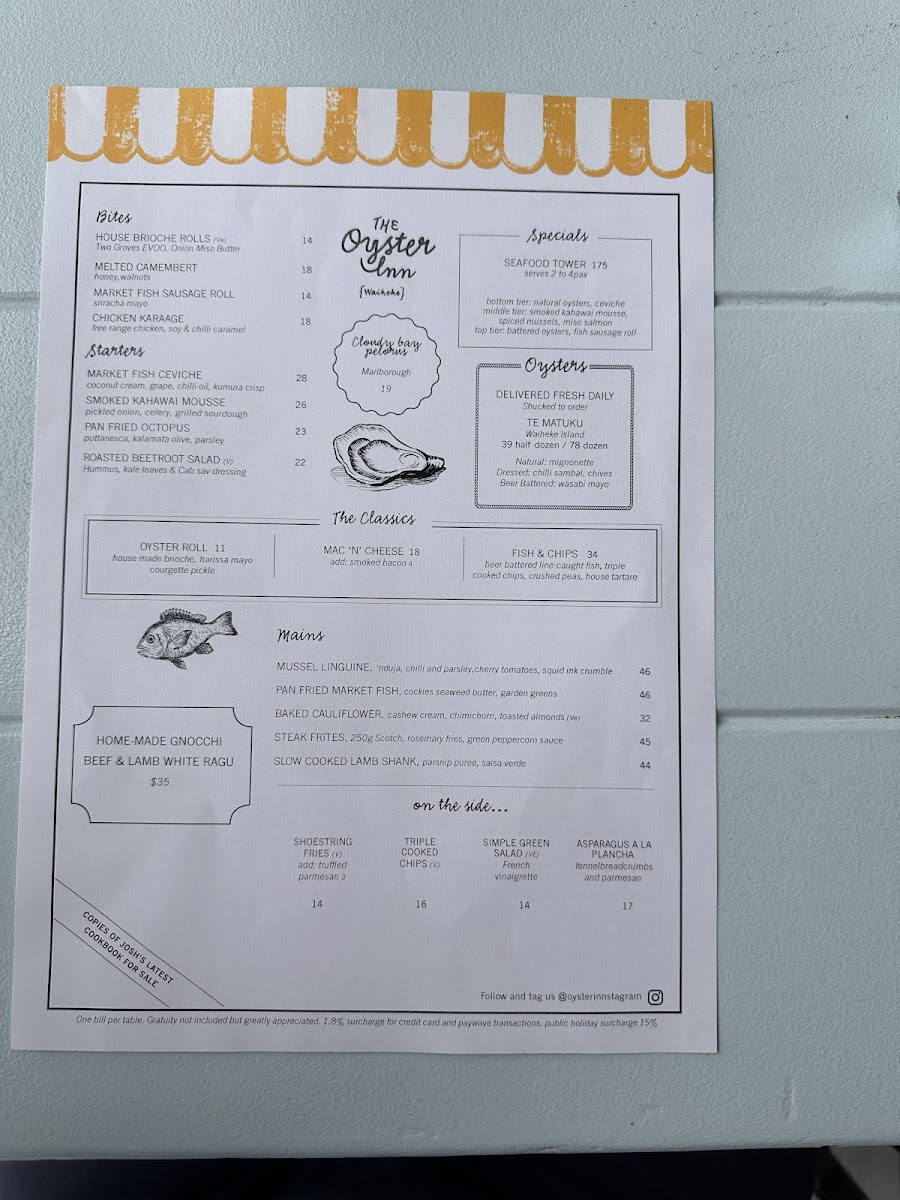 Bites
HOUSE BRIOCHE ROLLS (Ve) 14
Two Groves EVOO, Onion Miso Butter
MELTED CAMEMBERT 18
honey,walnuts
MARKET FISH SAUSAGE ROLL 14
sriracha mayo
CHICKEN KARAAGE 18
free range chicken, soy & chilli caramel
Starters
MARKET FISH CEVICHE 28
coconut cream, grape, chilli oil, kumura crisp
SMOKED KAHAWAI MOUSSE 26
pickled onion, celery, grilled sourdough
PAN FRIED OCTOPUS 23
puttanesca, kalamata olive, parsley
ROASTED BEETROOT SALAD (V) 22
Hummus, kale leaves & Cab sav dressing
THE
Oyster
Inn
{Waiheke}
Cloudy bay
pelorus
Marlborough
19
Specials
SEAFOOD TOWER 175
serves 2 to 4pax
bottom tier: natural oysters, ceviche
middle tier: smoked kahawai mousse,
spiced mussels, miso salmon
top tier: battered oysters, fish sausage roll
Oysters
DELIVERED FRESH DAILY
Shucked to order
TE MATUKU
Waiheke Island
39 half dozen / 78 dozen
Natural: mignonette
Dressed: chilli sambal, chives
Beer Battered: wasabi mayo
The Classics
OYSTER ROLL 11
house made brioche, harissa mayo
courgette pickle
MAC 'N' CHEESE 18
add: smoked bacon 4
FISH & CHIPS 34
beer battered line-caught fish, triple
cooked chips, crushed peas, house tartare
Mains
MUSSEL LINGUINE, 'nduja, chilli and parsley,cherry tomatoes, squid ink crumble 46
PAN FRIED MARKET FISH, cockles seaweed butter, garden greens 46
BAKED CAULIFLOWER, cashew cream, chimichurri, toasted almonds (Ve) 32
STEAK FRITES, 250g Scotch, rosemary fries, green peppercorn sauce 45
SLOW COOKED LAMB SHANK, parsnip puree, salsa verde 44
HOME-MADE GNOCCHI
BEEF & LAMB WHITE RAGU
$35
on the side...
SHOESTRING
FRIES (V)
add: truffled
parmesan 3
14
TRIPLE
COOKED
CHIPS (V)
16
SIMPLE GREEN
SALAD (VE)
French
vinaigrette
14
ASPARAGUS A LA
PLANCHA
fennelbreadcrumbs
and parmesan
17
COPIES OF JOSH'S LATEST
COOKBOOK FOR SALE
Follow and tag us @oysterinnstagram
One bill per table. Gratuity not included but greatly appreciated. 1.8% surcharge for credit card and paywave transactions. public holiday surcharge 15%